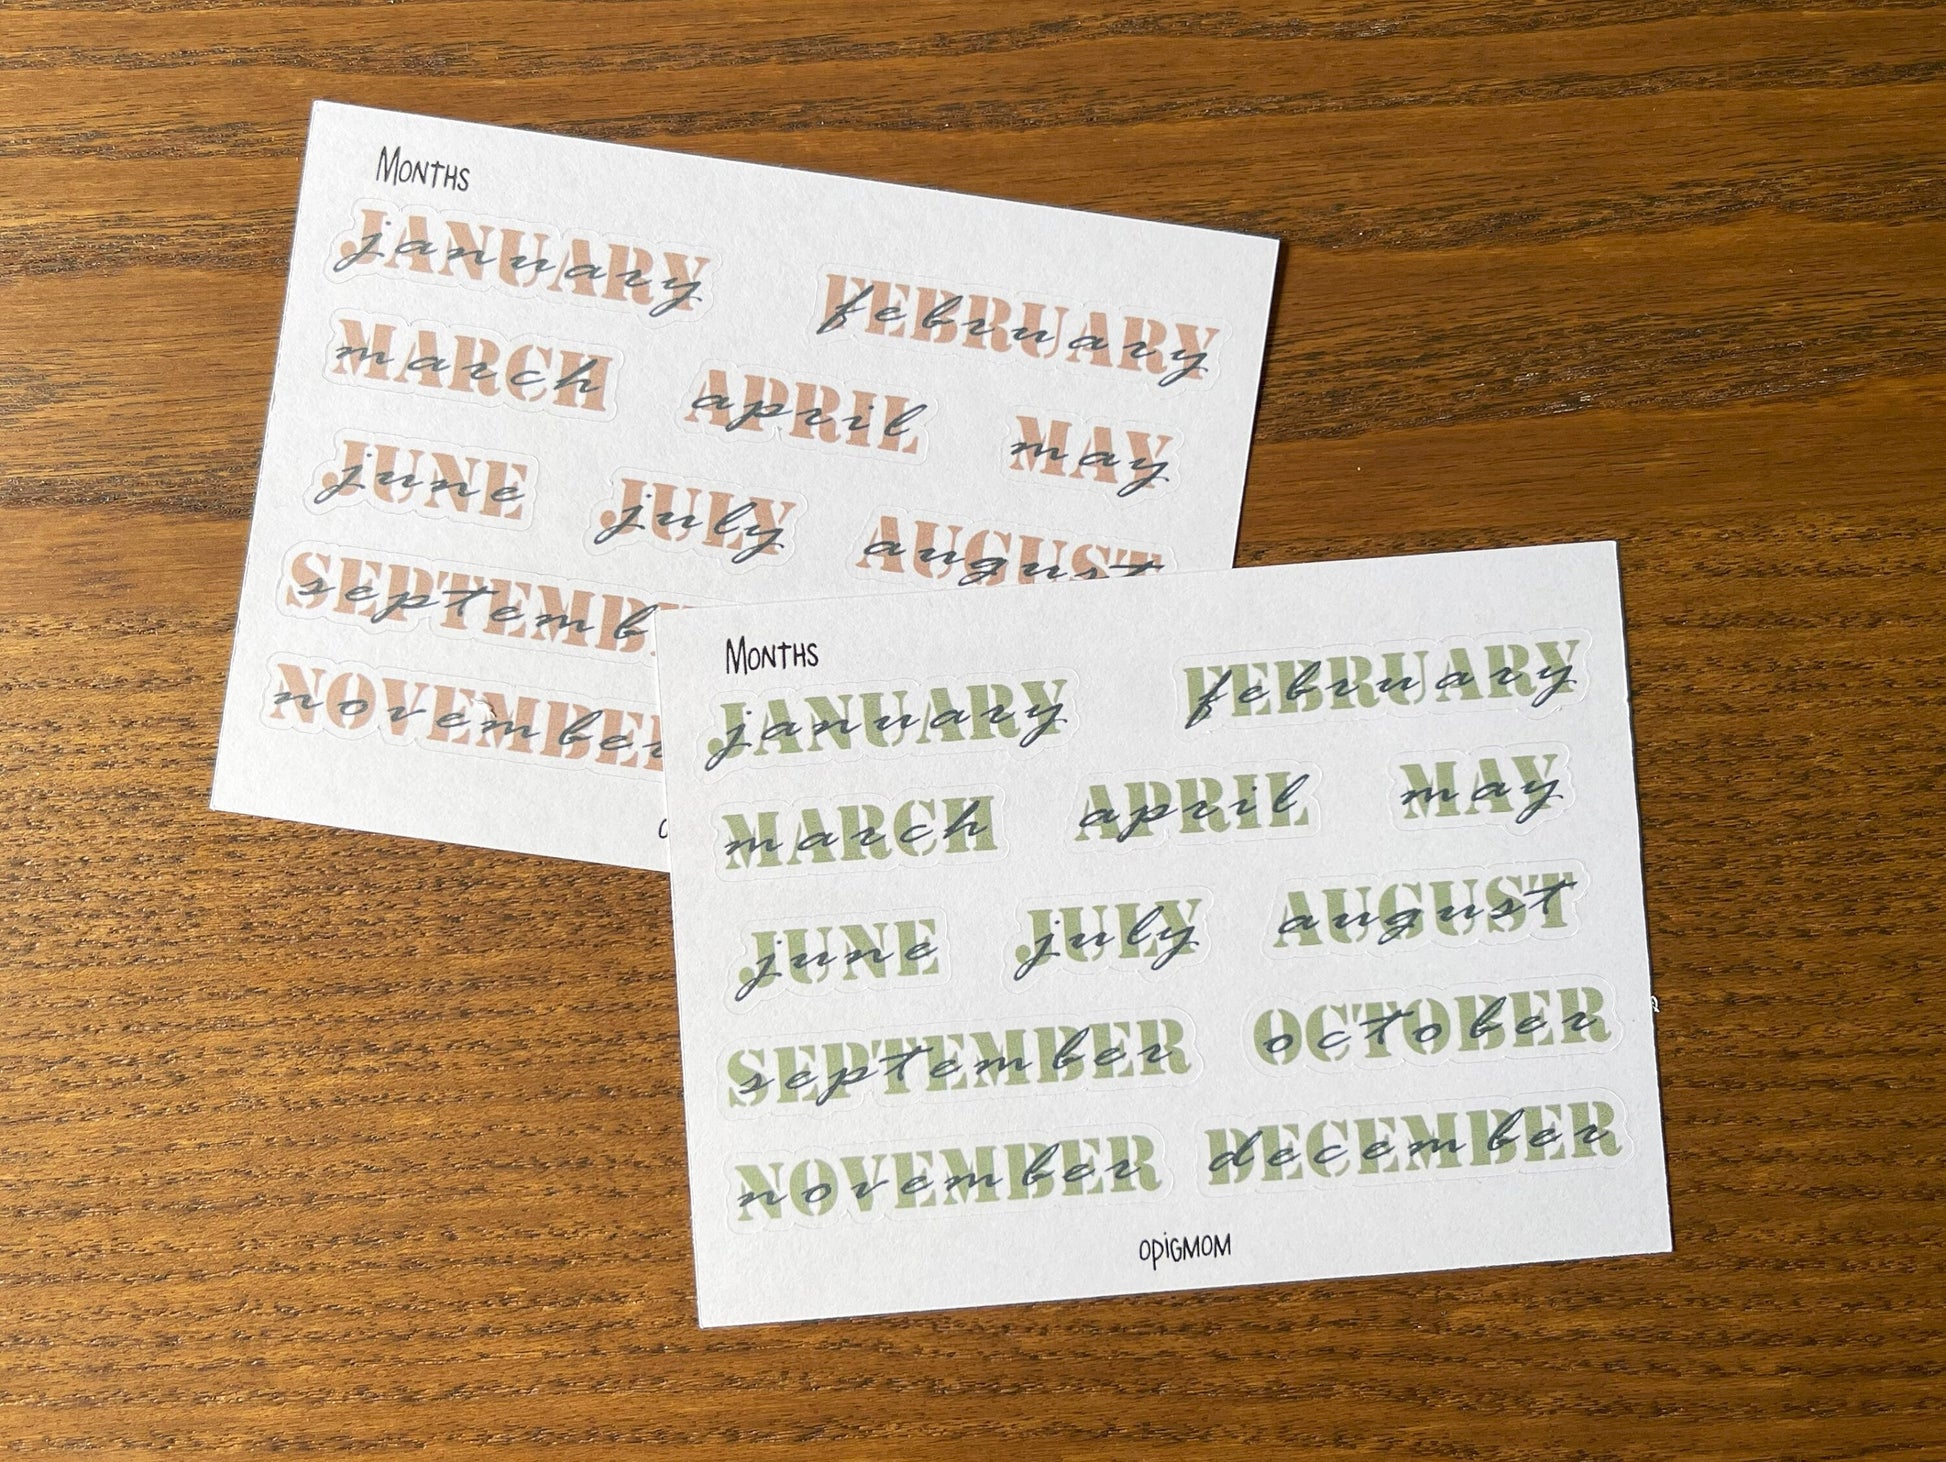 Months
JANUARY january FEBRUARY february
MARCH march APRIL april MAY may
JUNE june JULY july AUGUST august
SEPTEMB septemb
NOVEMBER november
Months
JANUARY january FEBRUARY february
MARCH march APRIL april MAY may
JUNE june JULY july AUGUST august
SEPTEMBER september OCTOBER october
NOVEMBER november DECEMBER december
OPIGMOM